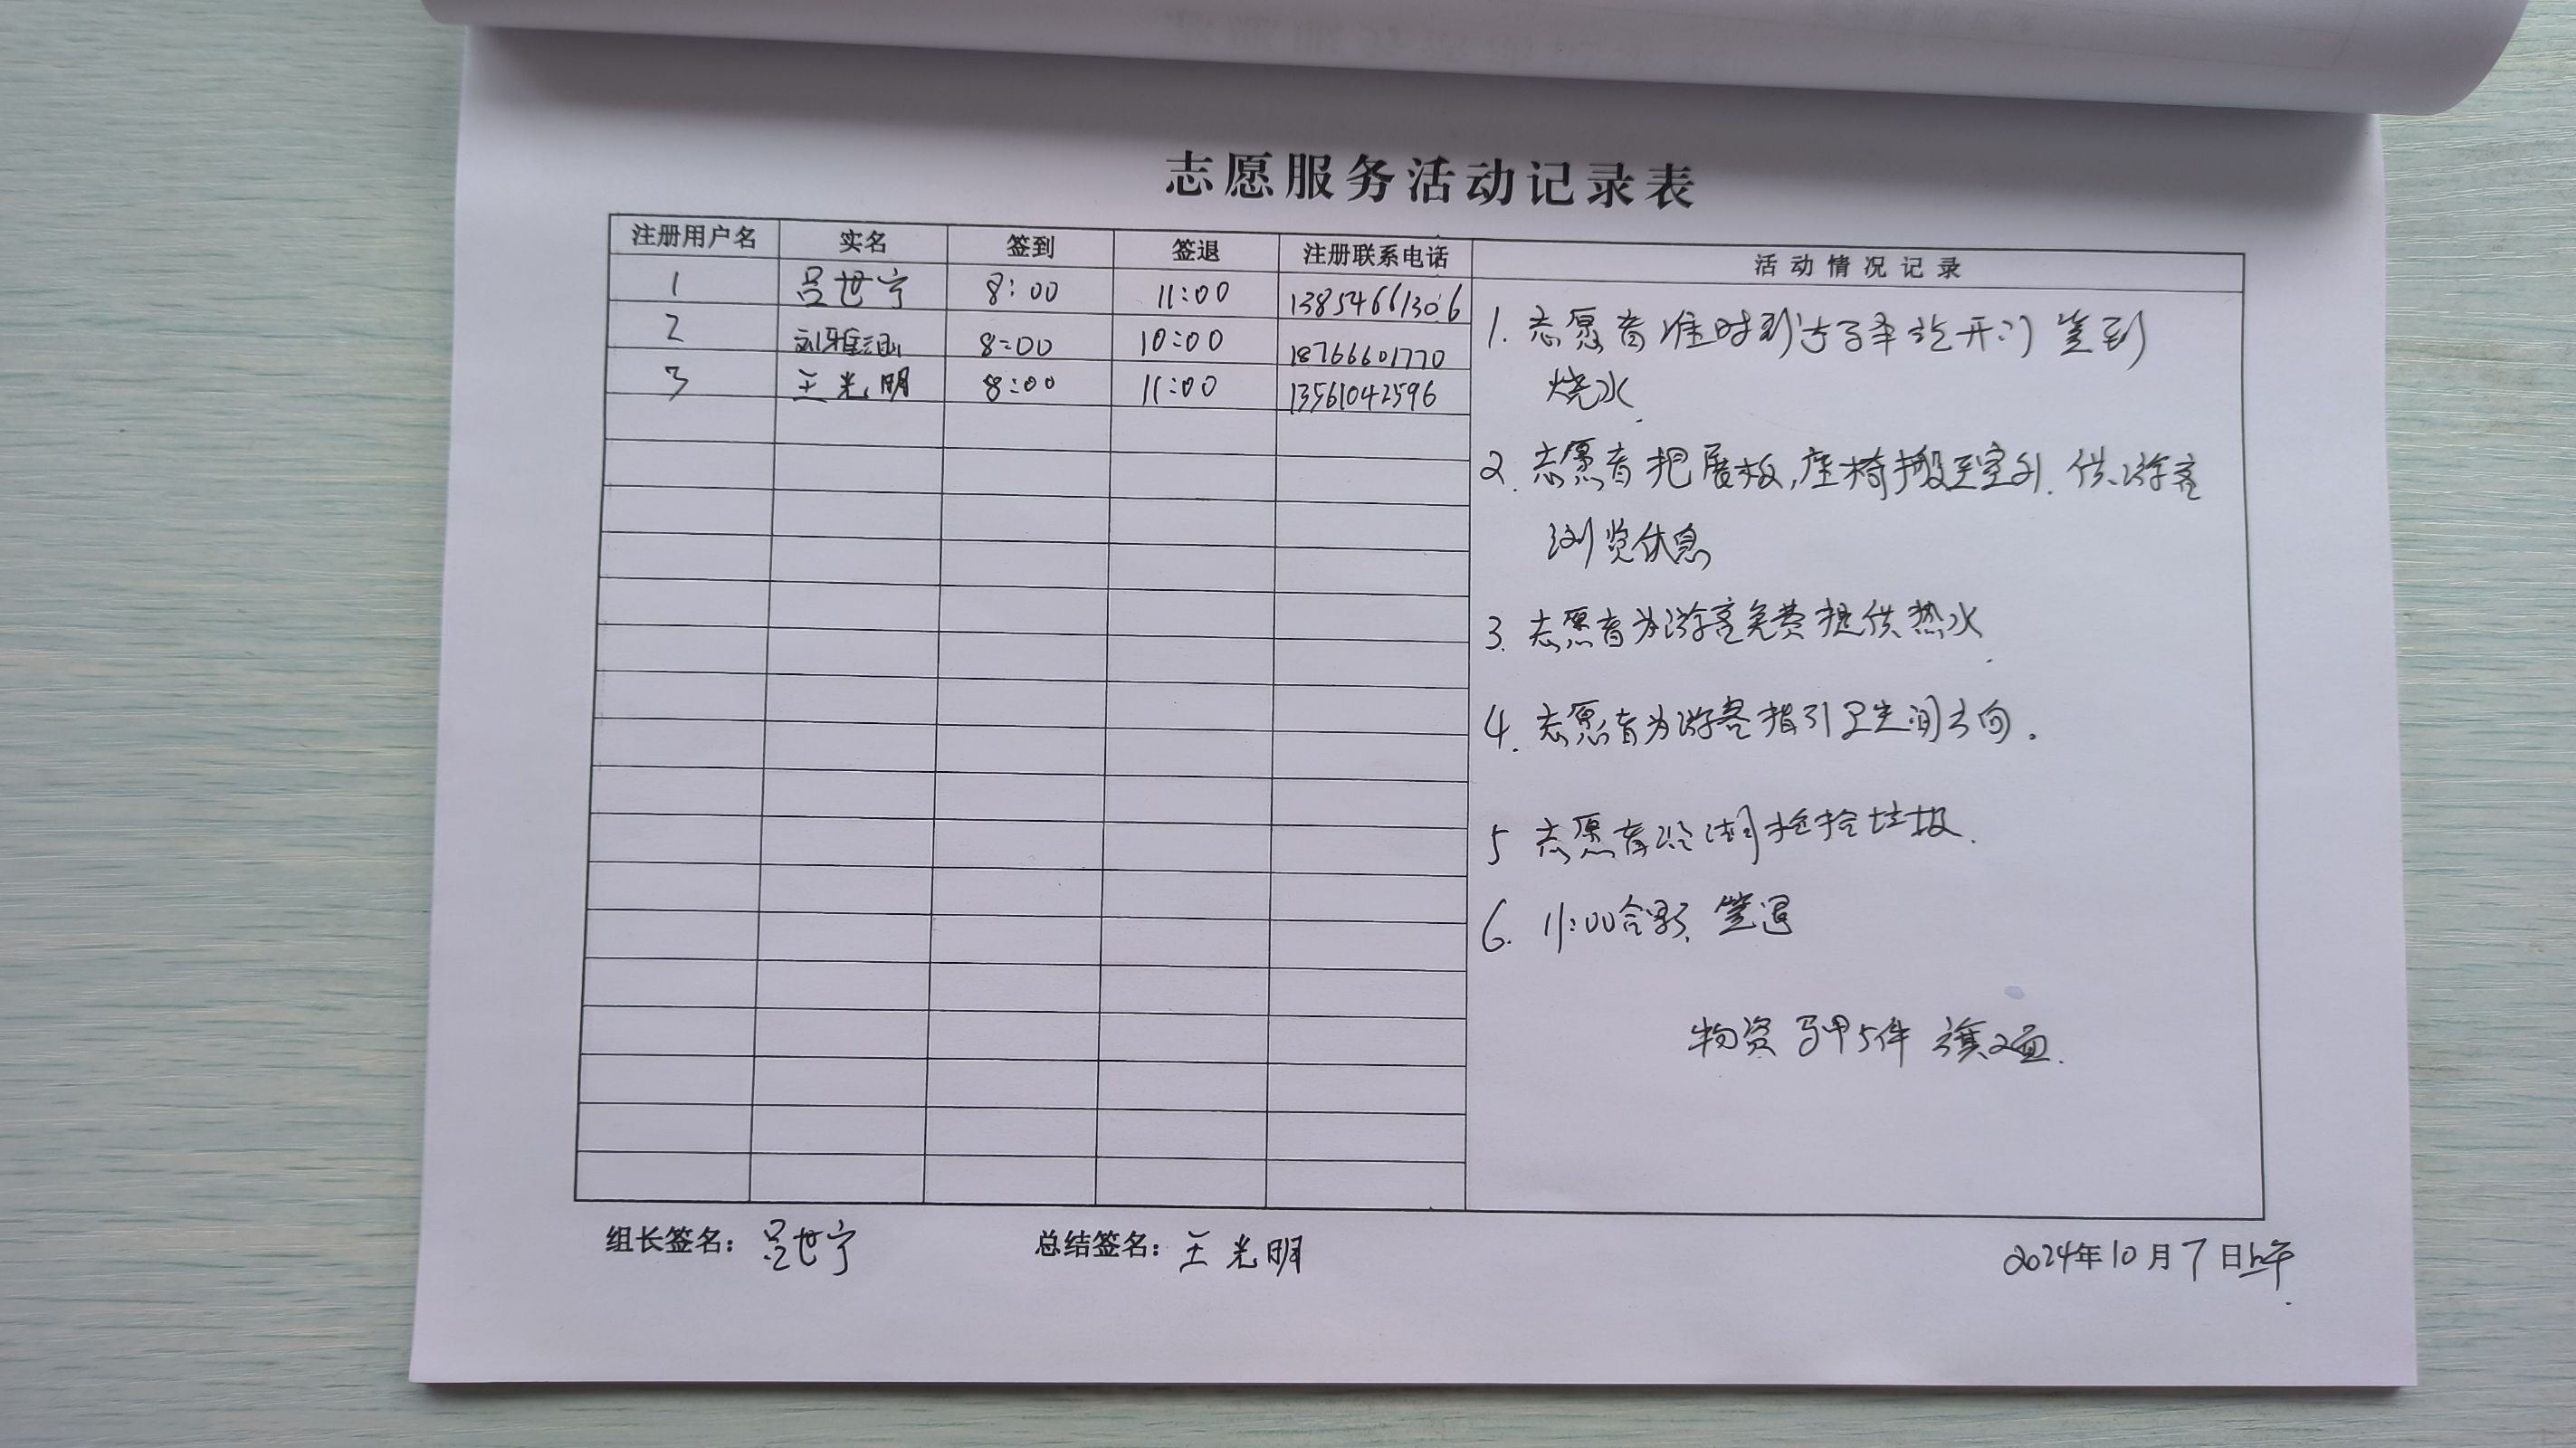 志愿服务活动记录表
注册用户名 实名 签到 签退 注册联系电话 活动情况记录
1 吕世宁 8:00 11:00 13854661306
2 刘雅 8:00 10:00 18766601770
3 王光明 8:00 11:00 13561042596
1. 志愿者准时到达 开门 签到
烧水
2. 志愿者把展板,座椅搬至室外. 供游客
浏览休息
3. 志愿者为游客免费提供热水
4. 志愿者为游客指引卫生间方向.
5 志愿者沿湖捡拾垃圾.
6. 11:00合影 签退
物资 马甲5件 旗2面.
组长签名: 吕世宁 总结签名: 王光明 2024年10月7日上午